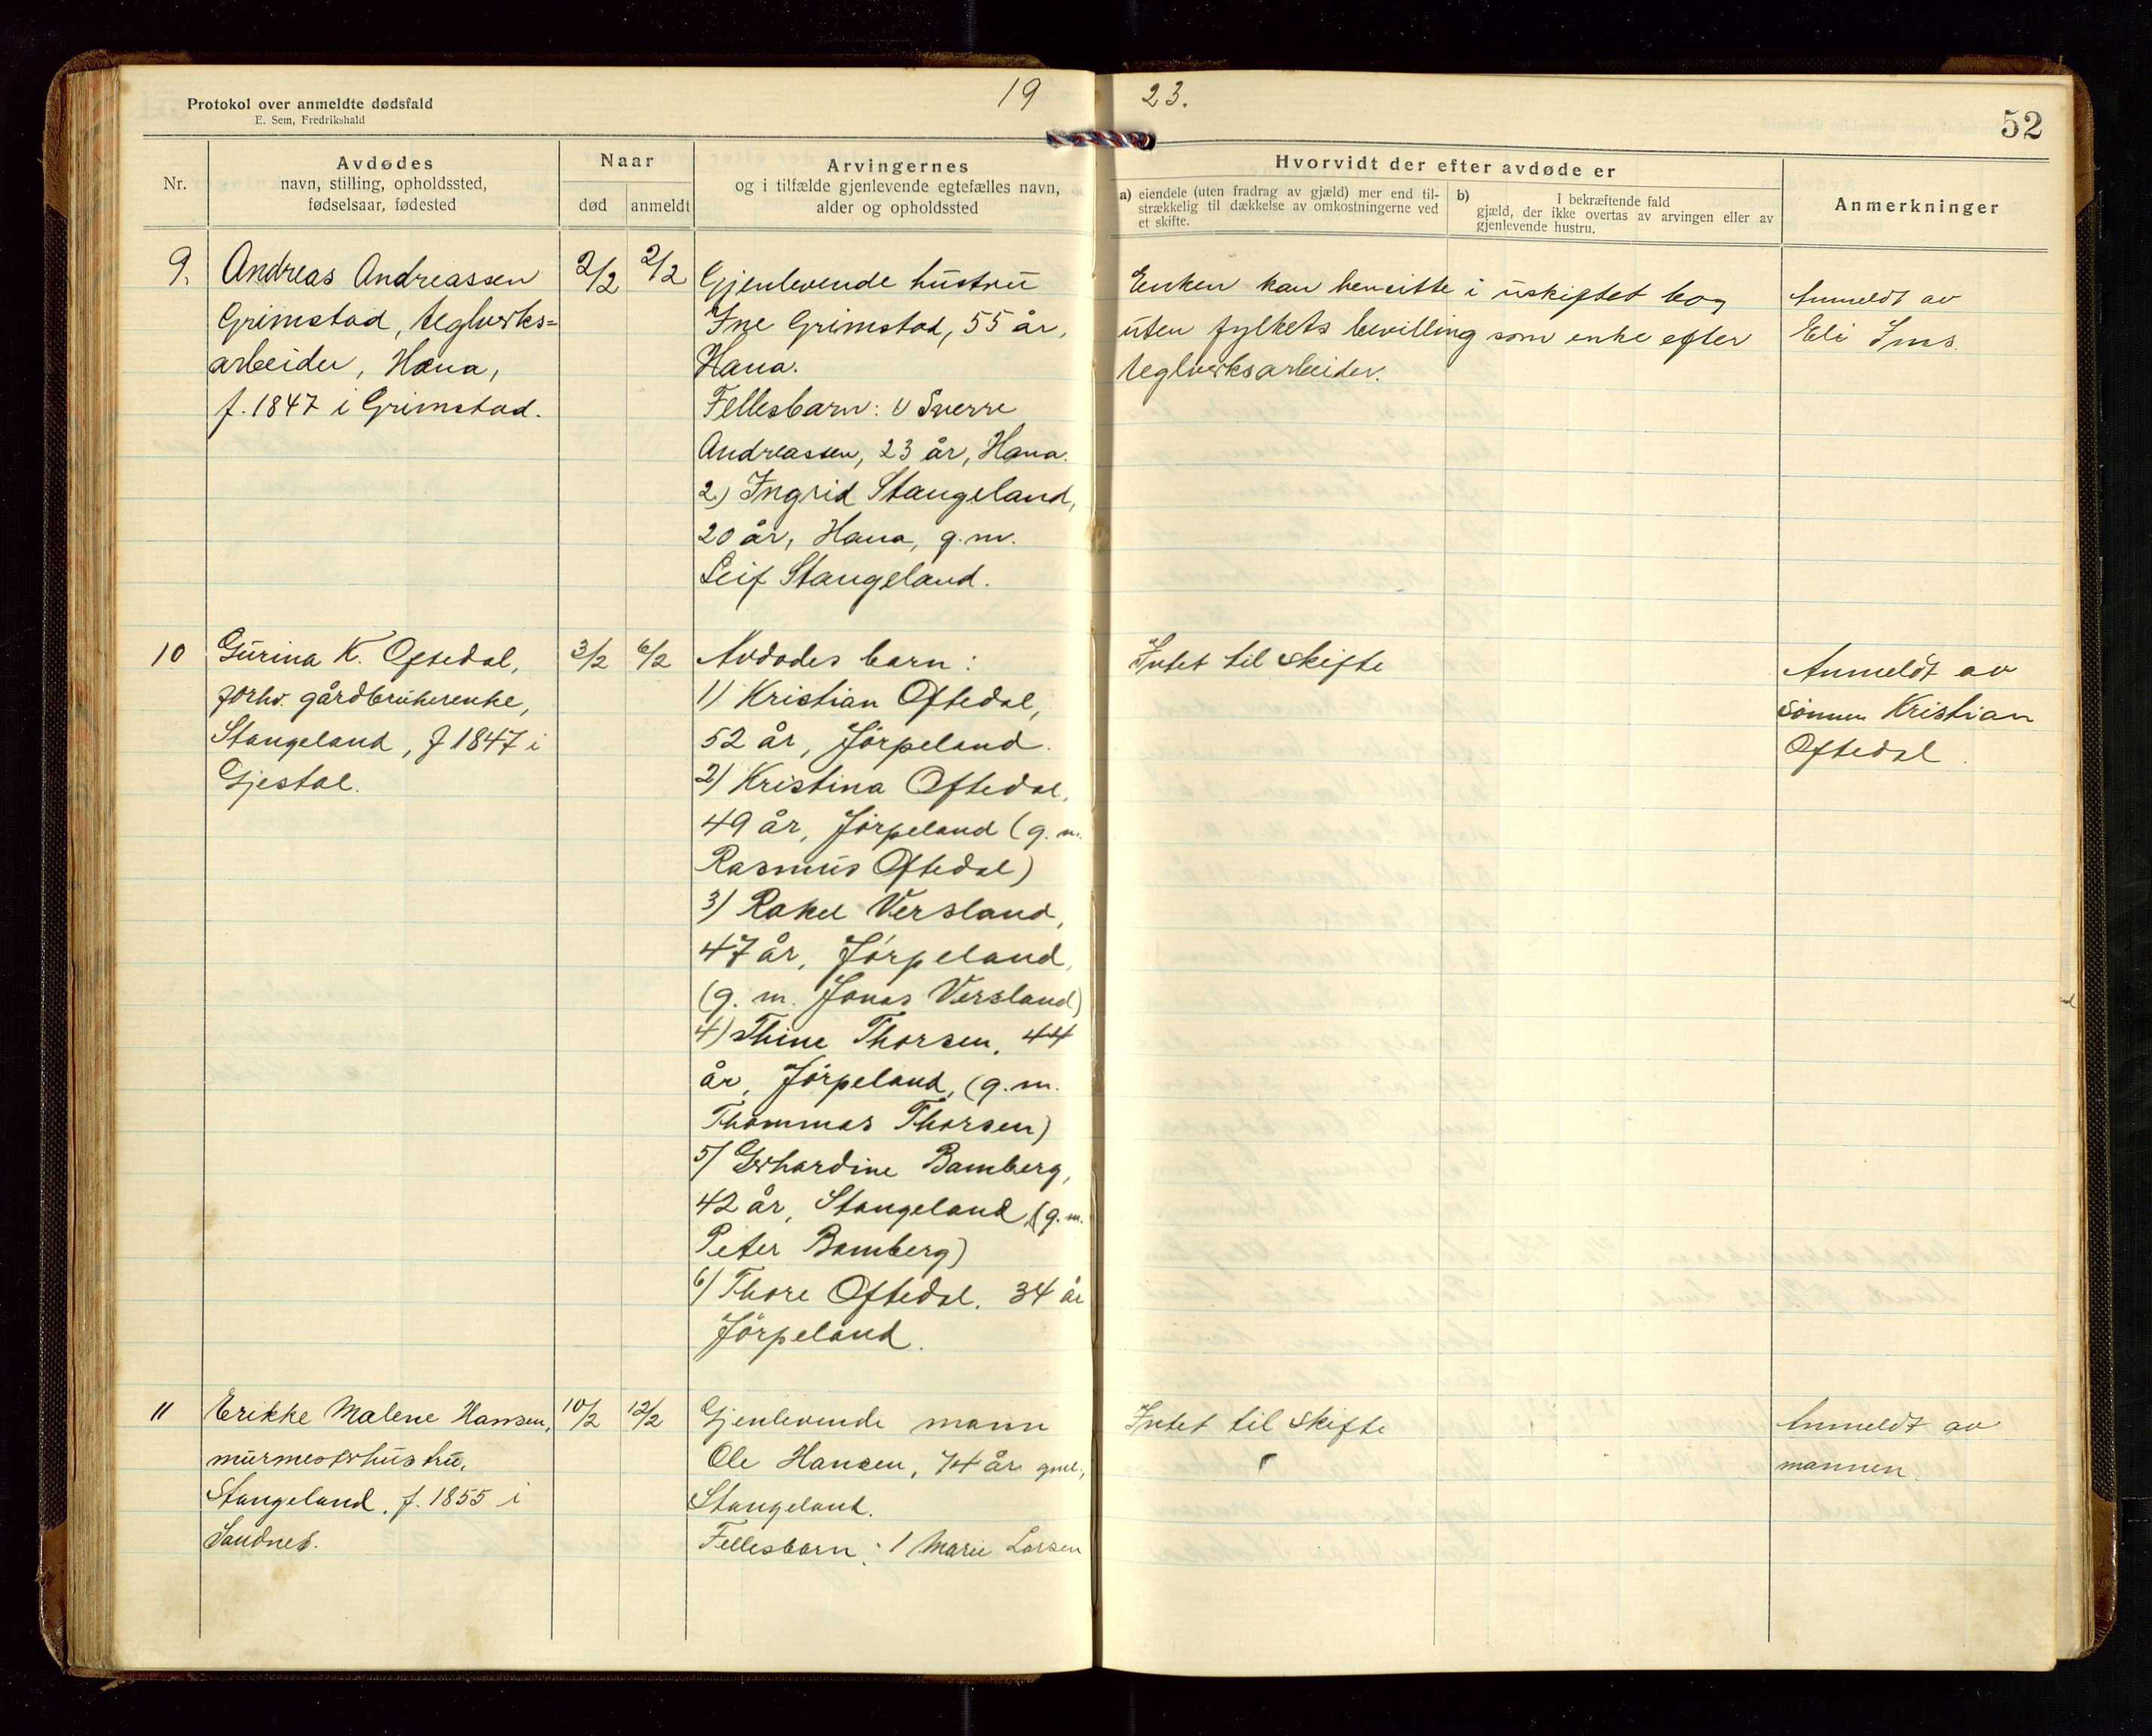 Protokol over anmeldte dødsfald
E. Sem, Fredrikshald
19 23.
52
Nr.
Avdødes
navn, stilling, opholdssted,
fødselsaar, fødested
Naar
død
anmeldt
Arvingernes
og i tilfælde gjenlevende egtefælles navn,
alder og opholdssted
Hvorvidt der efter avdøde er
a) eiendele (uten fradrag av gjæld) mer end til-
strækkelig til dækkelse av omkostningerne ved
et skifte.
b) I bekræftende fald
gjæld, der ikke overtas av arvingen eller av
gjenlevende hustru.
Anmerkninger
9.
Andreas Andreassen
Grimstad, teglverks=
arbeider, Hana,
f. 1847 i Grimstad.
2/2
2/2
Gjenlevende hustru
Ine Grimstad, 55 år,
Hana.
Fellesbarn: 1) Sverre
Andreassen, 23 år, Hana.
2) Ingrid Stangeland,
20 år, Hana, g.m.
Leif Stangeland.
Enken kan hensitte i uskiftet bo
uten fylkets bevilling som enke efter
teglverksarbeider.
Anmeldt av
Eli Ims.
10
Gurina K. Oftedal,
forhv. gårdbrukerenke,
Stangeland, f 1847 i
Gjestal.
3/2
6/2
Avdødes barn:
1) Kristian Oftedal,
52 år, Jörpeland.
2) Kristina Oftedal,
49 år, Jörpeland (g. m.
Rasmus Oftedal)
3) Rakel Versland,
47 år, Jörpeland,
(g. m. Jonas Versland)
4) Thine Thorsen, 44
år, Jörpeland, (g. m.
Thommas Thorsen)
5) Gerhardine Bamberg,
42 år, Stangeland (g. m.
Peter Bamberg)
6) Thore Oftedal. 34 år
Jörpeland.
Intet til skifte
Anmeldt av
sönnen Kristian
Oftedal.
11
Erikke Malene Hansen,
murmesterhustru,
Stangeland. f. 1855 i
Sandnes.
10/2
12/2
Gjenlevende mann
Ole Hansen, 74 år gml.,
Stangeland.
Fellesbarn: 1 Marie Larsen
Intet til skifte
Anmeldt av
mannen.